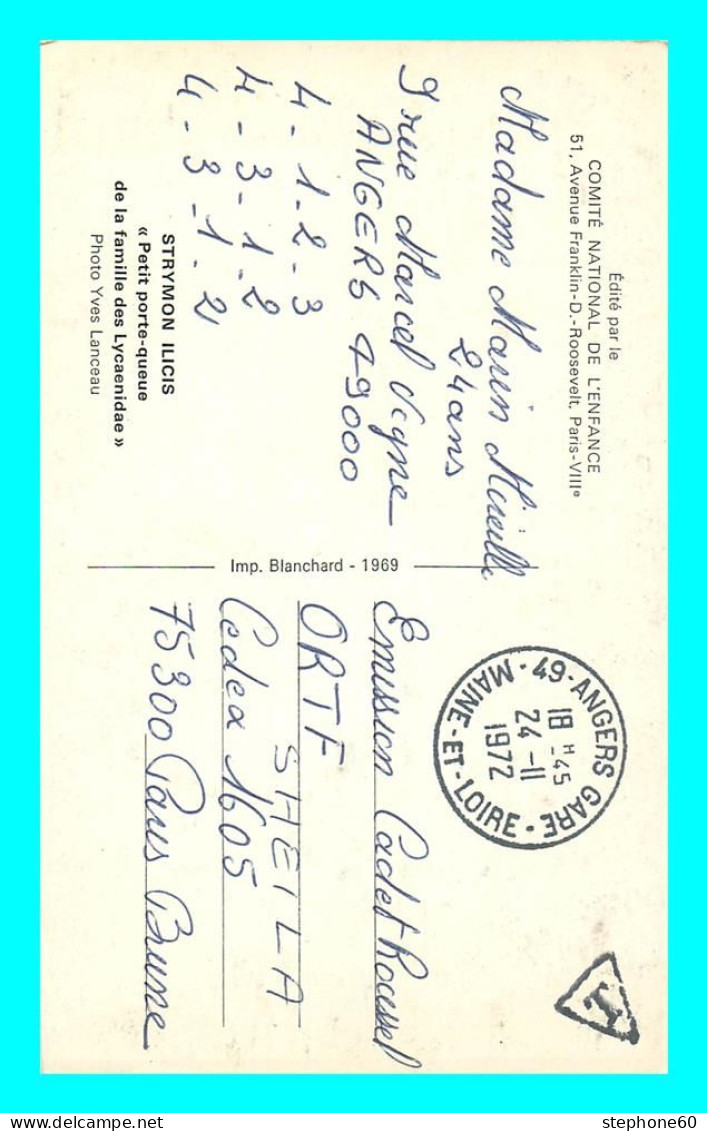 Édité par le
COMITÉ NATIONAL DE L'ENFANCE
51, Avenue Franklin-D.-Roosevelt, Paris-VIIIe
Madame Marin Mireille
24 ans
9 rue Marcel Vigne
ANGERS 49000
4 - 1 - 2 - 3
4 - 3 - 1 - 2
4 - 3 - 1 - 2
STRYMON ILICIS
« Petit porte-queue
de la famille des Lycaenidae »
Photo Yves Lanceau
Imp. Blanchard - 1969
49 - ANGERS GARE
18 H 45
24 - 11
1972
MAINE - ET - LOIRE
T
Emission Cadet Roussel
ORTF
SHEILA
Cedex 1605
75300 Paris Brune
stephone60